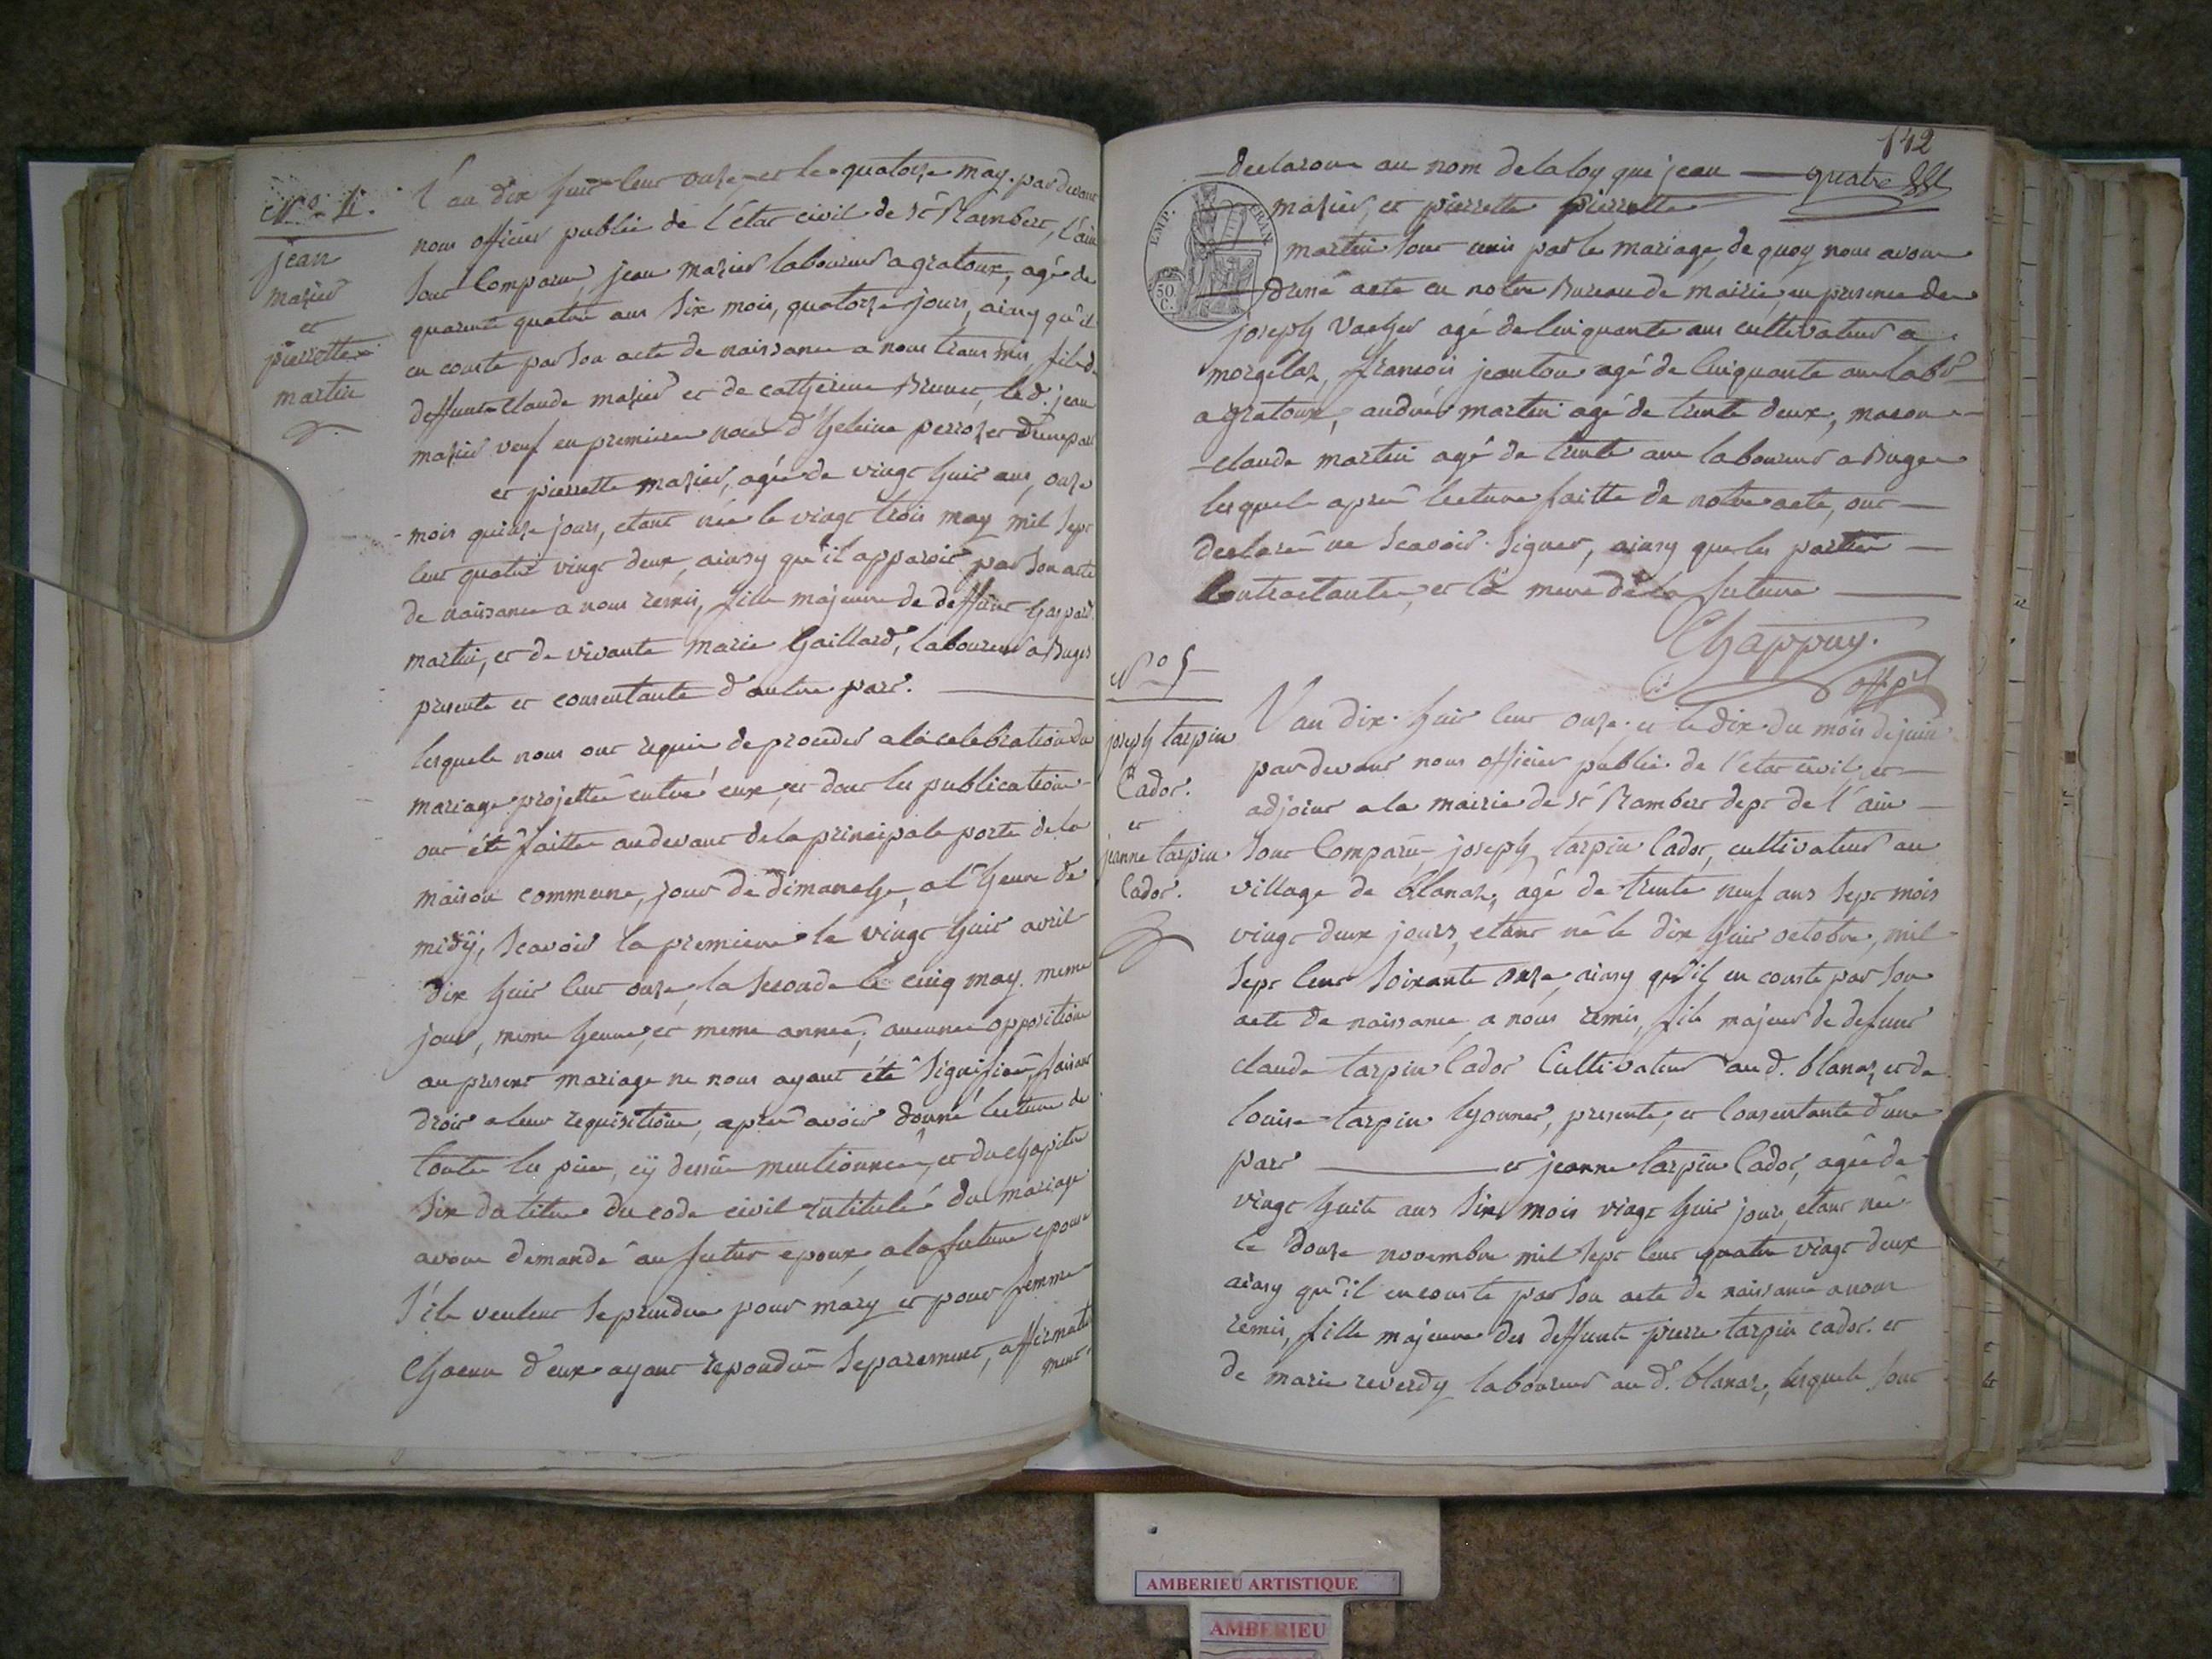 N.° 4.
jean
mazier
et
pierrette
martin
L'an dix huit cent onze et le quatorze may. par devant
nous officier public de l'état civil de St Rambert, l'ain
sont Comparu, jean mazier laboureur a gratoux, agé de
quarente quatre ans Six mois, quatorze jours, ainsy qu'il
en conste par son acte de naissance a nous transmis, fils de
deffunts Claude mazier et de catherine Brunet, le d. jean
mazier veuf en premiere noce d'heleine perroz et d'une part
et pierrette mazier, agée de vingt huit ans, onze
mois quinze jours, etant née le vingt trois may mil sept
cent quatre vingt deux, ainsy qu'il apparoit par son acte
de naissance a nous remis, fille majeure de deffunt gaspard
martin, et de vivante Marie Gaillard, laboureur a Buges
presente et consentante d'autre part.
lesquels nous ont requis de proceder a la celebration du
mariage projetté entre eux, et dont les publications
ont été faittes au devant de la principale porte de la
maison commune, jour de dimanche, a l'heure de
midÿ, Scavoir la premiere le vingt huit avril
dix huit cent onze, la Seconde le cinq may. meme
jour, meme heure, et meme année; aucunes oppositions
au present mariage ne nous ayant été Signifiée, faisant
droit a leur requisitions, après avoir donné lecture de
toute les pieces, cÿ dessus mentionnée, et du chapitre
Six du titre du code civil intitulé du mariage
avons demandé au futur epoux, a la future epouse
S'ils veulent se prendre pour mary et pour femme
Chacun d'eux ayant repondus Separement, affirmative
ment.
142
declarons au nom de la loy que jean quatre
mazier, et pierrette pierrette
EMP. FRAN.
50
C.
martin sont unis par le mariage, de quoy nous avons
dressé acte en notre Bureau de mairie en presence de
joseph Vacher agé de Cinquante ans cultivateur a
morgelaz, francois jeanton agé de Cinquante ans labr
a gratoux, andré martin agé de trente deux, macon
claude martin agé de trente ans laboureur a Buges
lesquels aprés lecture faitte de notre acte, ont
declaré ne Scavoir Signer, ainsy que les parties
Contractantes, et la mere de la future
Chappuy.
off. p.
N° 5
joseph tarpin
Cador.
et
jeanne tarpin
Cador.
L'an dix huit cent onze et le dix du mois de juin
par devant nous officier public de l'etat civil, et
adjoint a la mairie de St Rambert dept de l'ain
Sont Comparu, joseph tarpin Cador, cultivateur au
village de blanaz, agé de trente neuf ans Sept mois
vingt deux jours, etant né le dix huit octobre, mil
Sept Cent Soixante onze, ainsy qu'il en conste par Son
acte de naissance a nous remis, fils majeur de defunt
claude tarpin Cador Cultivateur au d. blanaz et de
louise tarpin lyonnet, presente, et Consentante d'une
part et jeanne tarpin Cador, agée de
vingt huite ans Six mois vingt huit jours, etant née
le douze novembre mil Sept Cent quatre vingt deux
ainsy qu'il en conste par son acte de naissance a nous
remis, fille majeure des deffunts pierre tarpin cador. et
de marie reverdy laboureur au d. blanaz, lesquels sont
AMBERIEU ARTISTIQUE
AMBERIEU